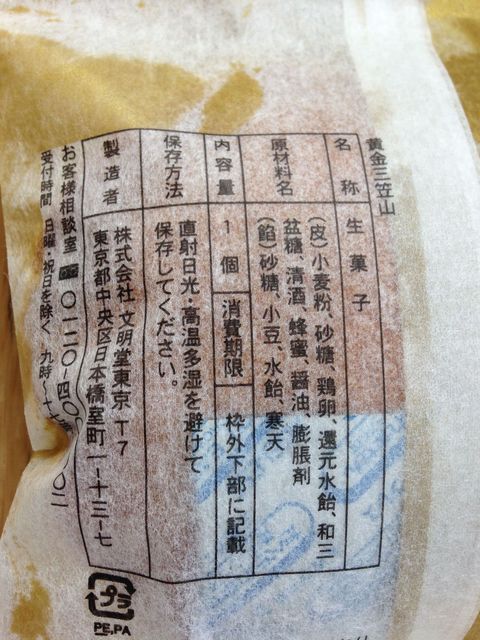 黄金三笠山
名称 生菓子
原材料名 (皮)小麦粉、砂糖、鶏卵、還元水飴、和三
盆糖、清酒、蜂蜜、醤油、膨脹剤
(餡)砂糖、小豆、水飴、寒天
内容量 1個 消費期限 枠外下部に記載
保存方法 直射日光・高温多湿を避けて
保存してください。
製造者 株式会社 文明堂東京 T7
東京都中央区日本橋室町一-十三-七
お客様相談室 〇一二〇-四〇
〇二
受付時間 日曜・祝日を除く 九時〜十
プラ
PE,PA